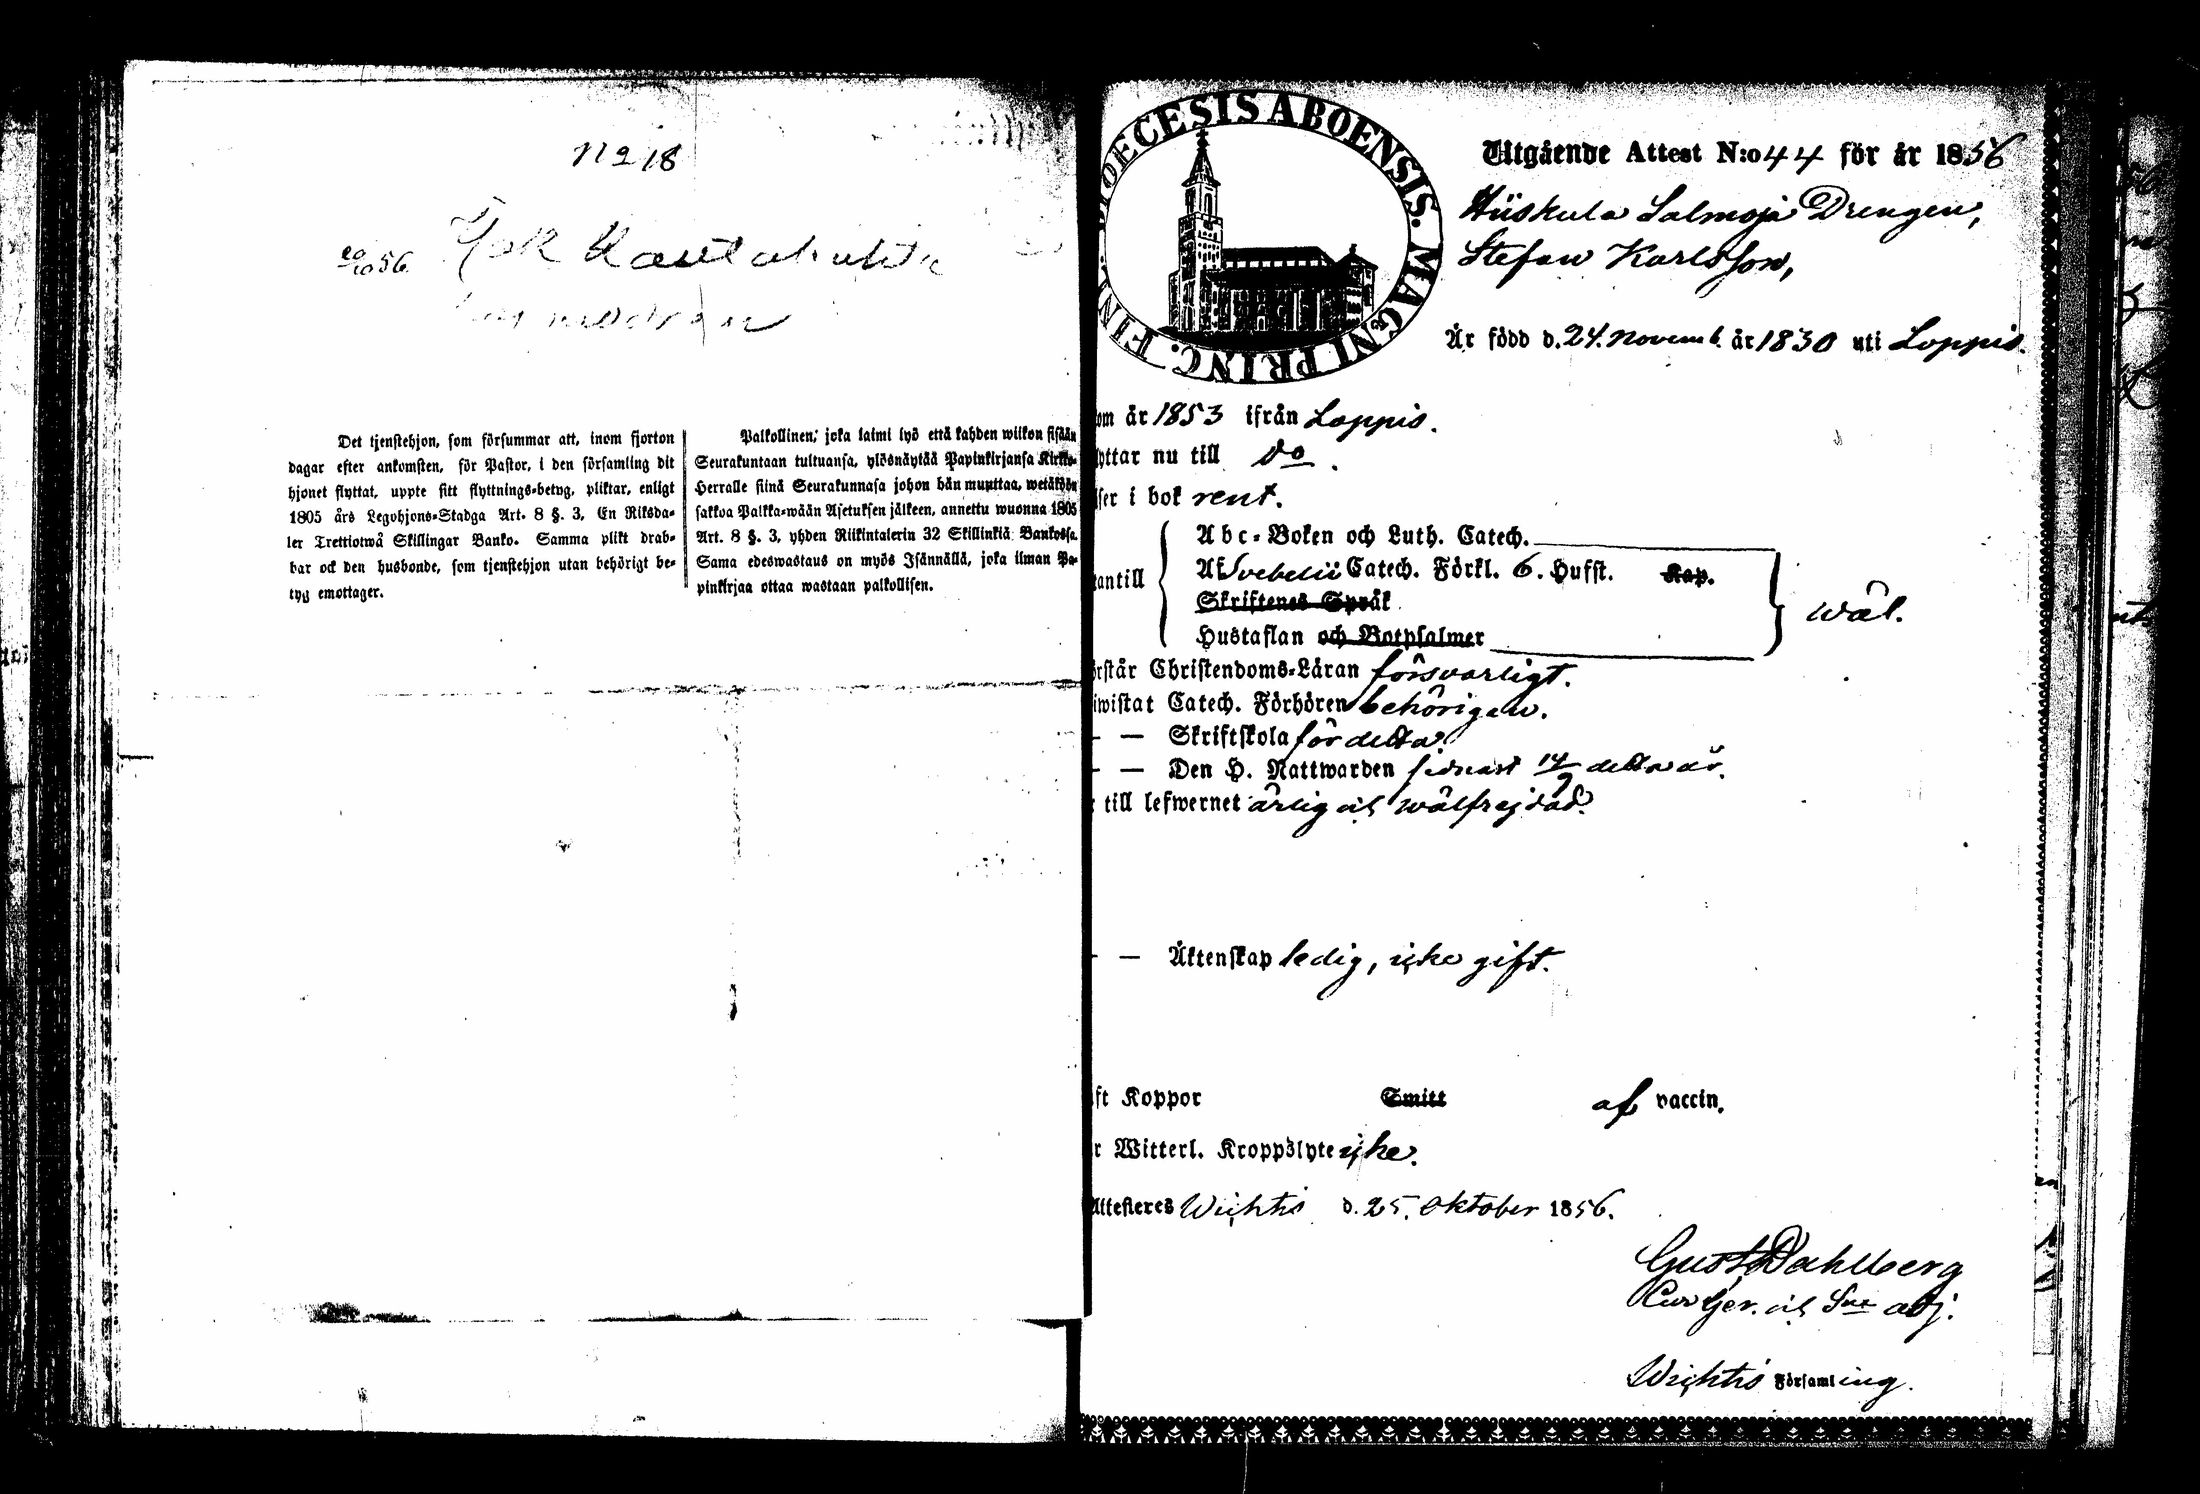 N2 18
20/10 56.
Det tjenstehjon, som försummar att, inom fjorton
dagar efter ankomsten, för Pastor, i den församling dit
hjonet flyttat, uppte sitt flyttnings-betyg, pliktar, enligt
1805 års Legohjons-Stadga Art. 8 §. 3, En Riksda-
ler Trettiotwå Skillingar Banko. Samma plikt drab-
bar ock den husbonde, som tjenstehjon utan behörigt be-
tyg emottager.
Palkollinen, joka laimi lyö että kahden wiikon sisään
Seurakuntaan tultuansa, ylösnäytää Papinkirjansa Kirkko-
Herralle siinä Seurakunnasa johon hän muuttaa, wetäköön
sakkoa Palkka-wään Asetuksen jälkeen, annettu wuonna 1805
Art. 8 §. 3, yhden Riikintalerin 32 Skillinkiä Bankossa.
Sama edeswastaus on myös Isännällä, joka ilman Pa-
pinkirjaa ottaa wastaan palkollisen.
DIOECESIS ABOENSIS. MAGNI PRINC. FINL.
Utgående Attest N:o 44 för år 1856
Hiiskula Salmoja Drengen,
Stefan Karlsson,
Är född d. 24. Novemb. år 1830 uti Loppis.
om år 1853 ifrån Loppis.
yttar nu till do.
ser i bok rent.
antill
Abc-Boken och Luth. Catech.
Af Svebelii Catech. Förkl. 6. Hufst. Kap.
Skriftenes Språk
Hustaflan och Botpsalmer
wäl.
örstår Christendoms-Läran försvarligt.
iwistat Catech. Förhören behörigen.
— — Skriftskola för detta.
— — Den H. Nattwarden sidnast 14/9 detta år.
till lefwernet ärlig och wälfrejdad.
— — Äktenskap ledig, icke gift.
ft Koppor Smitt af vaccin.
r Witterl. Kroppslyte icke.
Attesteres Wichtis d. 25. Oktober 1856.
Gust. Dahlberg
adj.
Wichtis Församling.